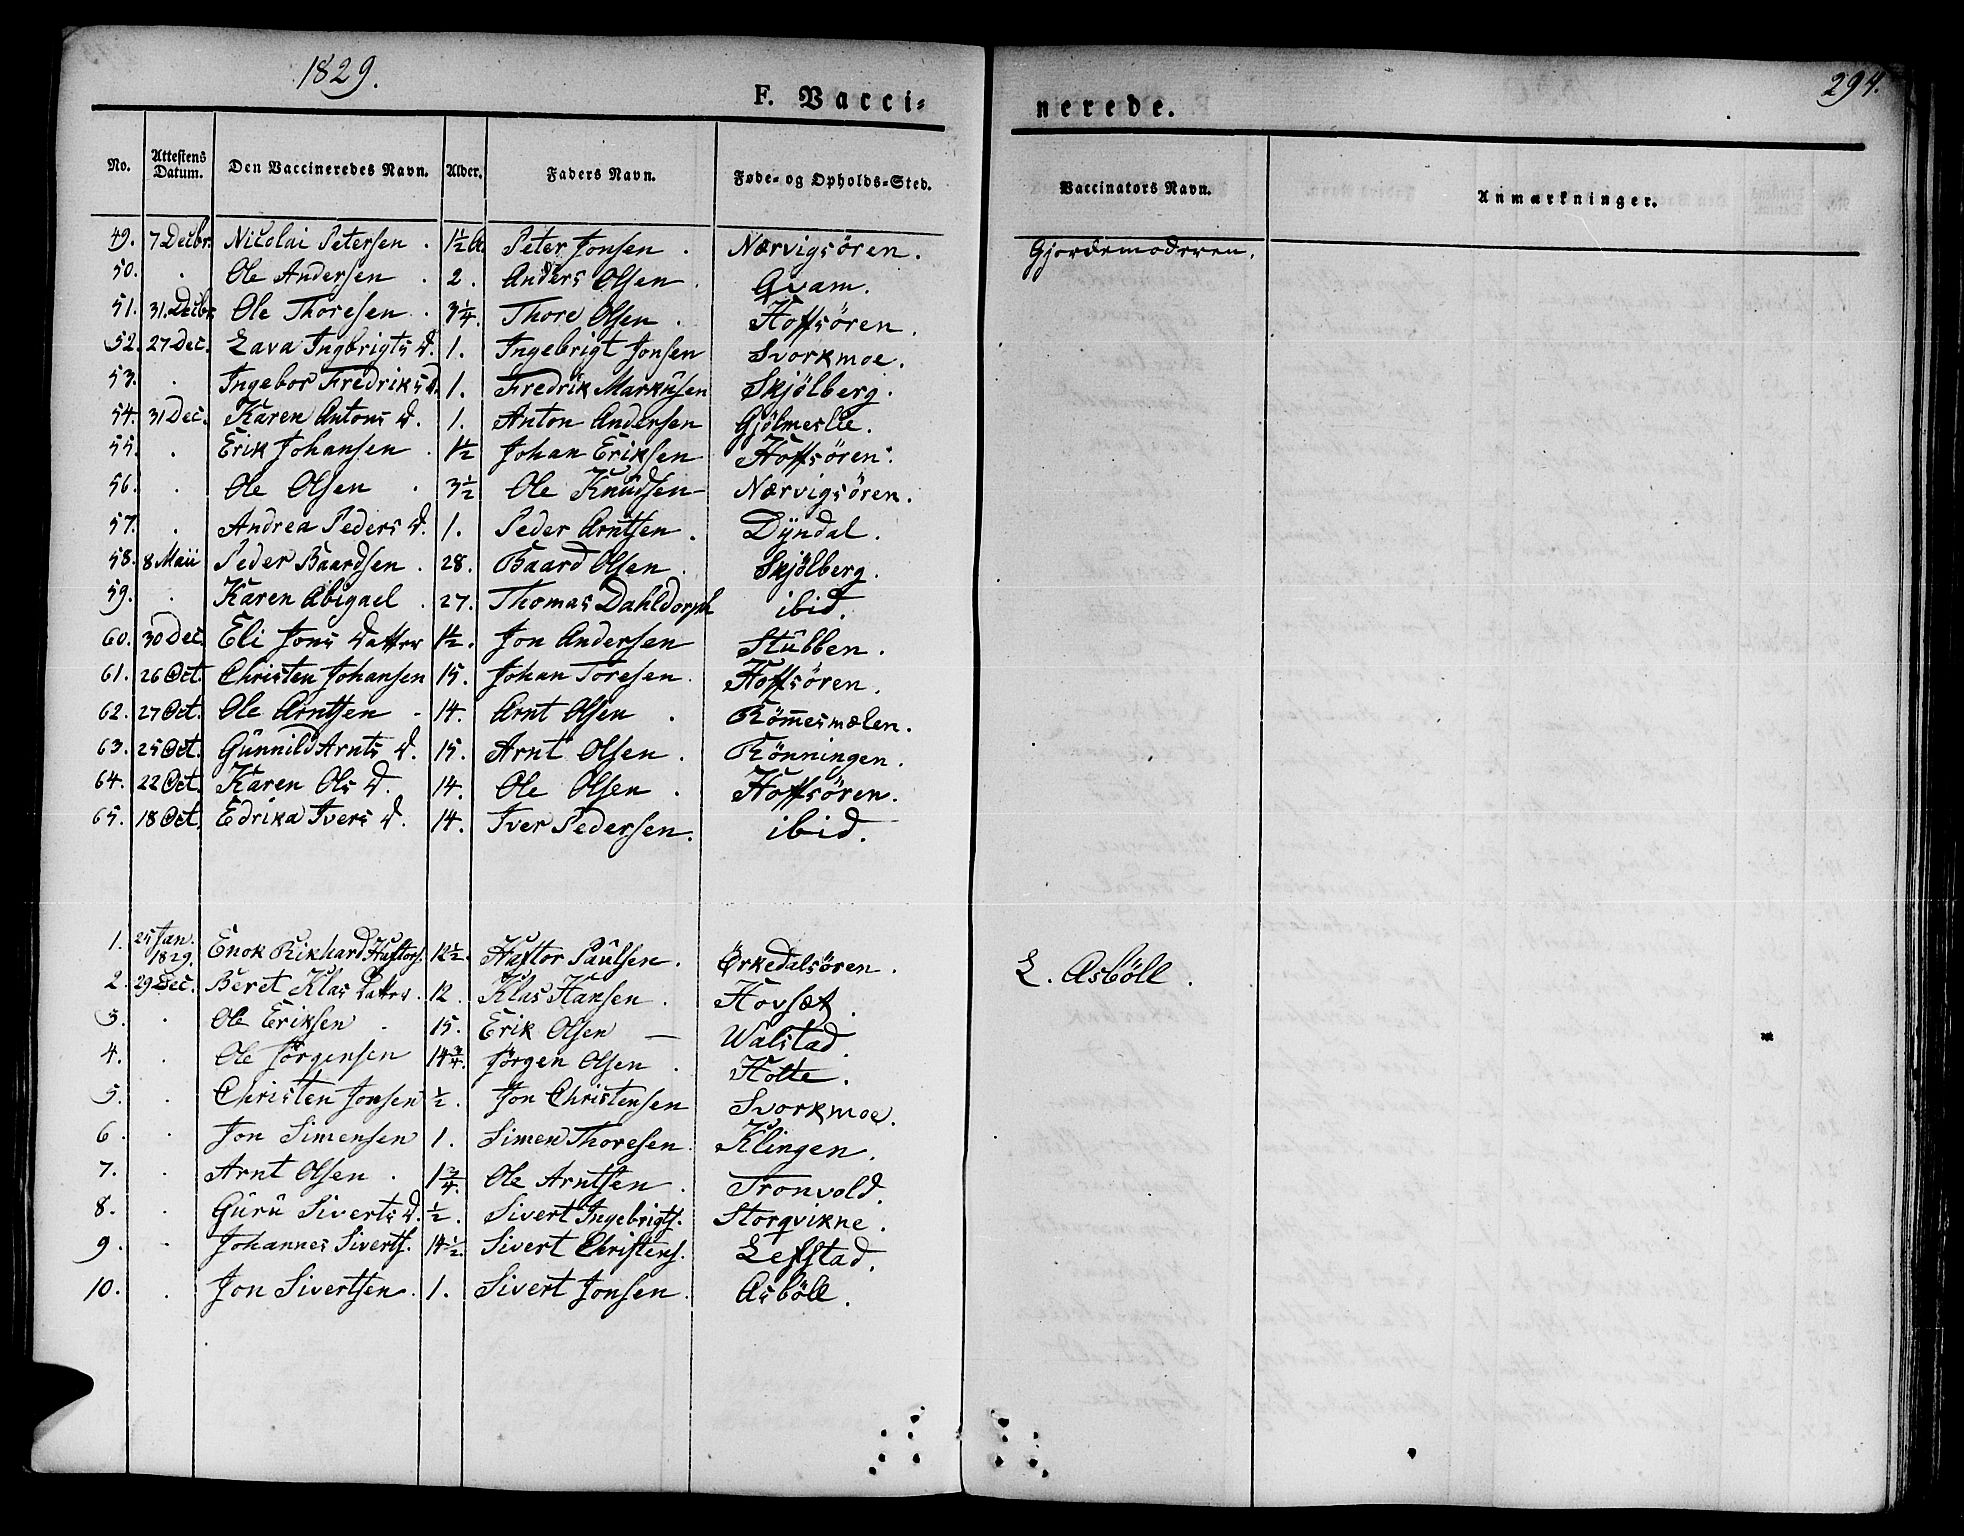 1829.
294.
F. Vacci-
nerede.
No. Attestens Datum. Den Vaccineredes Navn. Alder. Faders Navn. Føde- og Opholds-Sted. Vaccinators Navn. Anmærkninger.
49. 7 Decbr. Nicolai Petersen . 1½ A Peter Jonsen . Nærvigsören. Gjordemodrren.
50. . Ole Andersen . 2. Anders Olsen . Qvam.
51. 31. Decbr. Ole Thoresen . 3¼. Thore Olsen . Hoffsören .
52. 27 Dec. Lava Ingbrigts D. 1. Ingebrigt Jonsen Svorkmoe.
53. . Ingebor Fredriks D. 1. Fredrik Markusen Skjölberg.
54. 31 Dec. Karen Antons D. 1. Anton Andersen Gjölmeslie.
55. . Erik Johansen . 1½ Johan Eriksen Hoffsören.
56. . Ole Olsen . 3½ Ole Knudsen — Nærvigsören.
57. . Andrea Peders D. 1. Peder Arntsen . Dyndal.
58. 8 Maii Peder Baardsen . 28. Baard Olsen . Skjölberg.
59. . Karen Abigael . 27. Thomas Dahldorph ibid.
60. 30 Dec. Eli Jons Datter 1½. Jon Andersen Stubben .
61. 26 Oct. Christen Johansen 15. Johan Toresen . Hoffsören.
62. 27 Oct. Ole Arntsen . 14. Arnt Olsen . Römesmælen.
63. 25 Oct. Gunnild Arnts D. 15. Arnt Olsen . Rönningen.
64. 22 Oct. Karen Ols D. 14. Ole Olsen . Hoffsören.
65. 18 Oct. Edrika Ivers D. 14. Iver Pedersen. ibid.
1. 25 Jan. 1829. Enok Rikhard Haftors. 12½. Haftor Paulsen . Örkedalsören . L. Asböll .
2. 29 Dec. Beret Klas Datter. 12. Klas Hansen . Hovsæt .
3. . Ole Eriksen . 15. Erik Olsen — Walstad.
4. . Ole Jörgensen 14¾. Jörgen Olsen . Holte.
5. . Christen Jonsen ½. Jon Christensen Svorkmoe.
6. . Jon Simensen 1. Simen Thoresen . Klingen.
7. . Arnt Olsen . 1¾. Ole Arntsen . Tronvold.
8. . Guru Siverts D. ½. Sivert Ingebrigts. Storqvikne .
9. . Johannes Siverts. 14½. Sivert Christens. Lefstad.
10. . Jon Sivertsen . 1. Sivert Jonsen . Asböll .